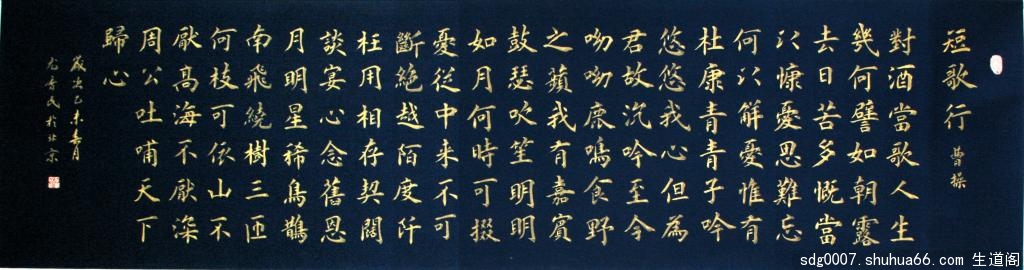 短歌行 曹操
對酒當歌人生
幾何譬如朝露
去日苦多慨當
以慷憂思難忘
何以解憂惟有
杜康青青子吟
悠悠我心但為
君故沉吟至今
呦呦鹿鳴食野
之蘋我有嘉賓
鼓瑟吹笙明明
如月何時可掇
憂從中来不可
斷絕越陌度阡
枉用相存契闊
談宴心念舊恩
月明星稀烏鵲
南飛繞樹三匝
何枝可依山不
厭高海不厭深
周公吐哺天下
歸心
歲次乙未春月
民於北京
sdg0007.shuhua66.com 生道阁